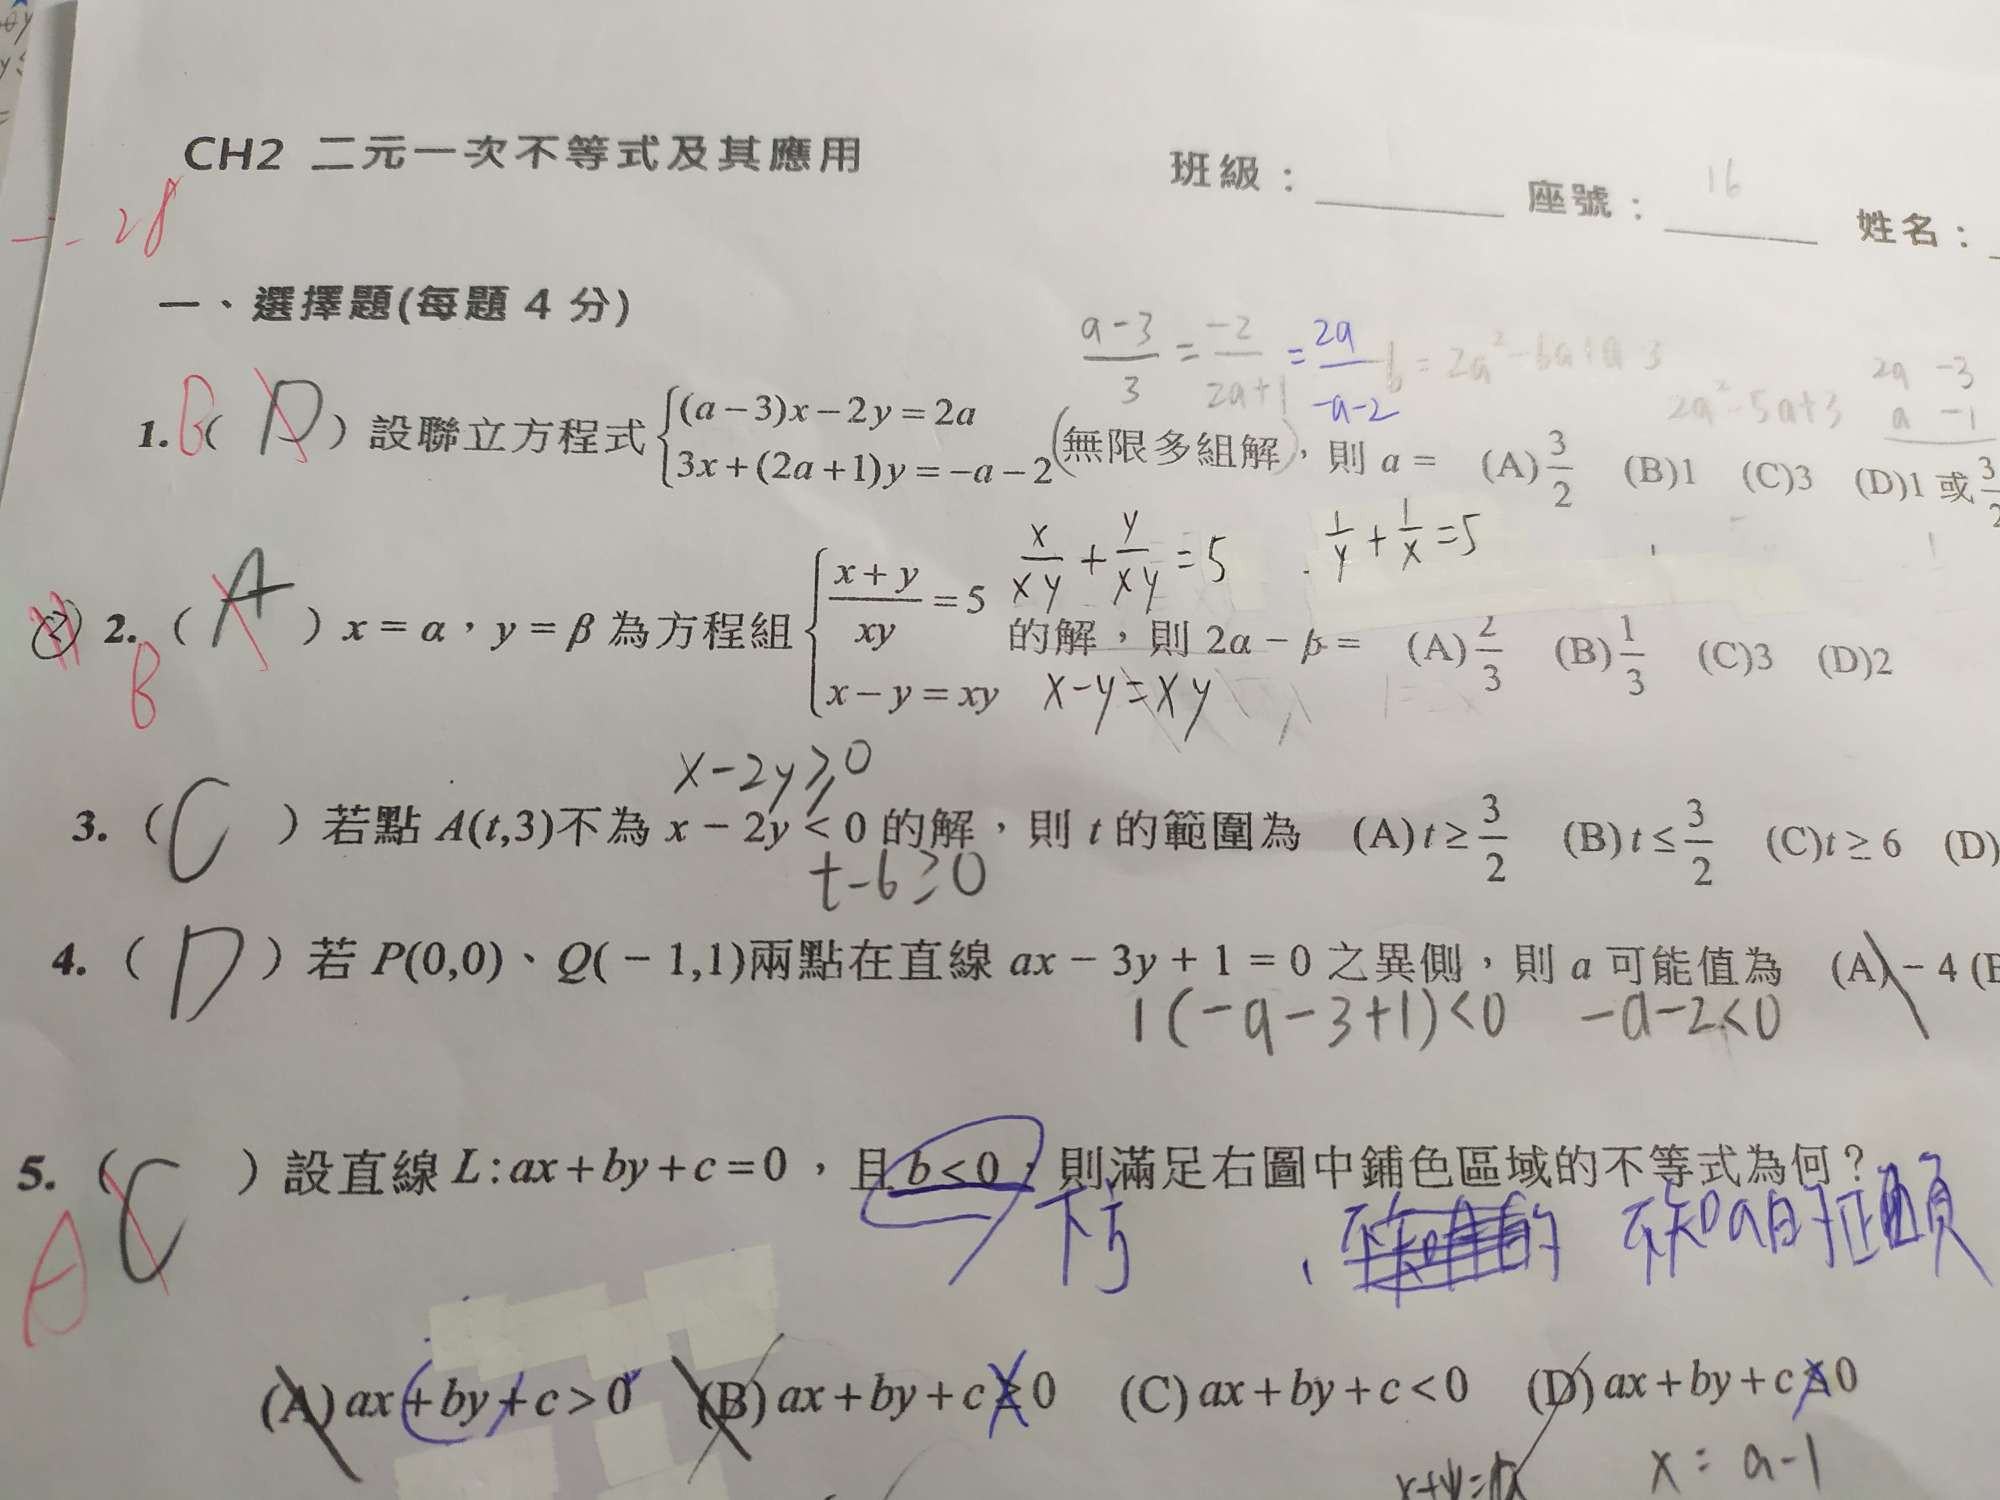 CH2 二元一次不等式及其應用
班級：
座號： 16
姓名：
28
一、選擇題(每題 4 分)
(a-3)/3 = -2/(2a+1) = 2a/(-a-2)
2a -3
a -1
2a²-5a+3
1. B ( D ) 設聯立方程式 {(a-3)x-2y=2a
3x+(2a+1)y=-a-2 (無限多組解)，則 a = (A) 3/2 (B)1 (C)3 (D)1 或 3/2
x/xy + y/xy = 5 1/y + 1/x = 5
2. ( A ) x = α，y = β 為方程組 {(x+y)/xy = 5
x-y=xy 的解，則 2α - β = (A) 2/3 (B) 1/3 (C)3 (D)2
B
x-y=xy
x-2y≥0
3. ( C ) 若點 A(t,3)不為 x - 2y < 0 的解，則 t 的範圍為 (A) t ≥ 3/2 (B) t ≤ 3/2 (C)t ≥ 6 (D)
t-6≥0
4. ( D ) 若 P(0,0)、Q(-1,1)兩點在直線 ax - 3y + 1 = 0 之異側，則 a 可能值為 (A) -4 (B
1(-a-3+1)<0 -a-2<0
5. ( C ) 設直線 L:ax+by+c=0，且 b<0，則滿足右圖中鋪色區域的不等式為何？
A
不知a的正負
(A) ax+by+c>0 (B) ax+by+c≥0 (C) ax+by+c<0 (D) ax+by+c≤0
x = a-1